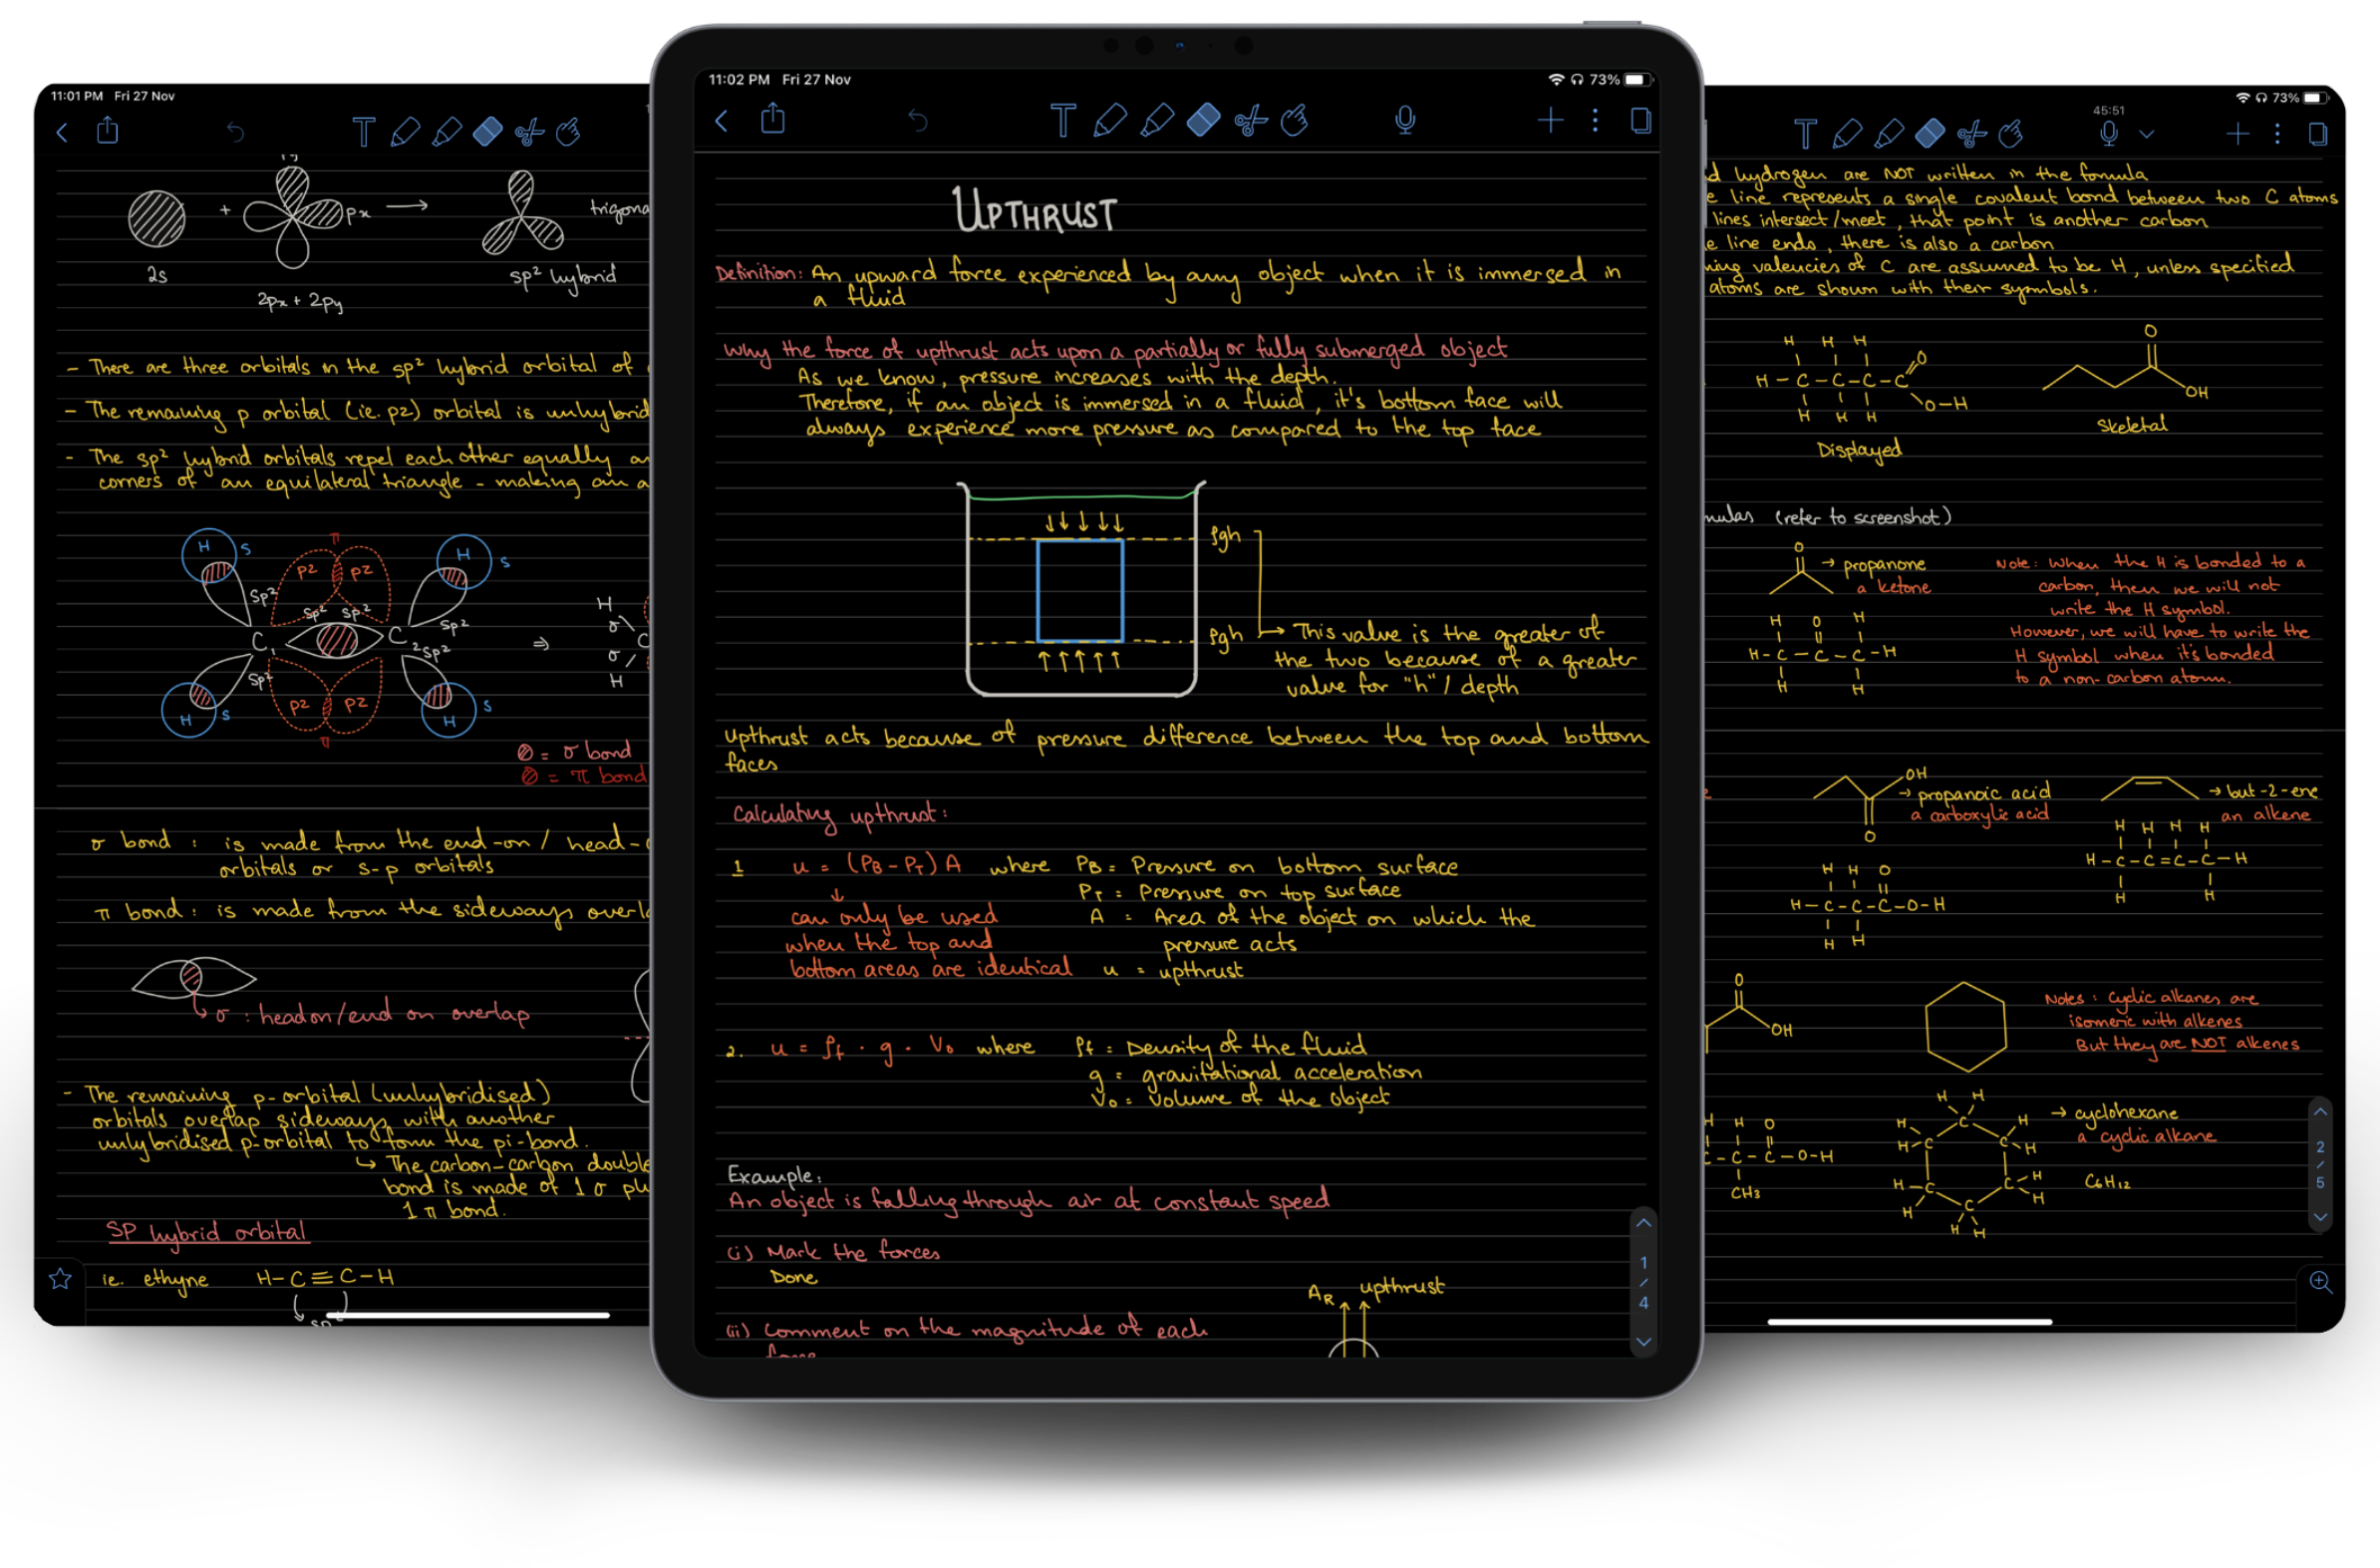 11:01 PM Fri 27 Nov
2s
+
px
2px + 2py
sp² hybrid
trigona
- There are three orbitals in the sp² hybrid orbital of
- The remaining p orbital (ie. pz) orbital is unhybrid
- The sp² hybrid orbitals repel each other equally an
corners of an equilateral triangle - making an a
H S π H S
pz pz
sp² sp² sp²
C₁ C₂ sp²
sp² sp²
pz pz
H S π H S
⇒
H
σ
C
σ
H
= σ bond
= π bond
σ bond : is made from the end-on / head-o
orbitals or s-p orbitals
π bond : is made from the sideways overla
σ : head on/end on overlap
- The remaining p-orbital (unhybridised)
orbitals overlap sideways with another
unhybridised p-orbital to form the pi-bond.
↳ The carbon-carbon double
bond is made of 1 σ plu
1 π bond.
SP hybrid orbital
ie. ethyne H-C≡C-H
sp
11:02 PM Fri 27 Nov
73%
UPTHRUST
Definition: An upward force experienced by any object when it is immersed in
a fluid
Why the force of upthrust acts upon a partially or fully submerged object
As we know, pressure increases with the depth.
Therefore, if an object is immersed in a fluid, it's bottom face will
always experience more pressure as compared to the top face
ρgh
ρgh → This value is the greater of
the two because of a greater
value for "h" / depth
Upthrust acts because of pressure difference between the top and bottom
faces
Calculating upthrust:
1 u = (PB - PT) A where PB = Pressure on bottom surface
PT = Pressure on top surface
can only be used A = Area of the object on which the
when the top and pressure acts
bottom areas are identical u = upthrust
2. u = ρf · g · Vo where ρf = Density of the fluid
g = gravitational acceleration
Vo = Volume of the object
Example:
An object is falling through air at constant speed
(i) Mark the forces
Done
AR upthrust
(ii) Comment on the magnitude of each
force
1
/
4
73%
45:51
d hydrogen are NOT written in the formula
e line represents a single covalent bond between two C atoms
lines intersect/meet, that point is another carbon
e line ends, there is also a carbon
ning valencies of C are assumed to be H, unless specified
atoms are shown with their symbols.
H H H O
H-C-C-C-C
O-H
H H H
Displayed
O
OH
Skeletal
mulas (refer to screenshot)
O
→ propanone
a ketone
H O H
H-C-C-C-H
H H
Note: When the H is bonded to a
carbon, then we will not
write the H symbol.
However, we will have to write the
H symbol when it's bonded
to a non-carbon atom.
OH
→ propanoic acid
a carboxylic acid
O
H H O
H-C-C-C-O-H
H H
→ but-2-ene
an alkene
H H H H
H-C-C=C-C-H
H H
O
OH
Notes: Cyclic alkanes are
isomeric with alkenes
But they are NOT alkenes
H H O
C-C-C-O-H
CH3
H H
C
H H
H-C C-H
H-C C-H
H C H
H H
→ cyclohexane
a cyclic alkane
C6H12
2
/
5